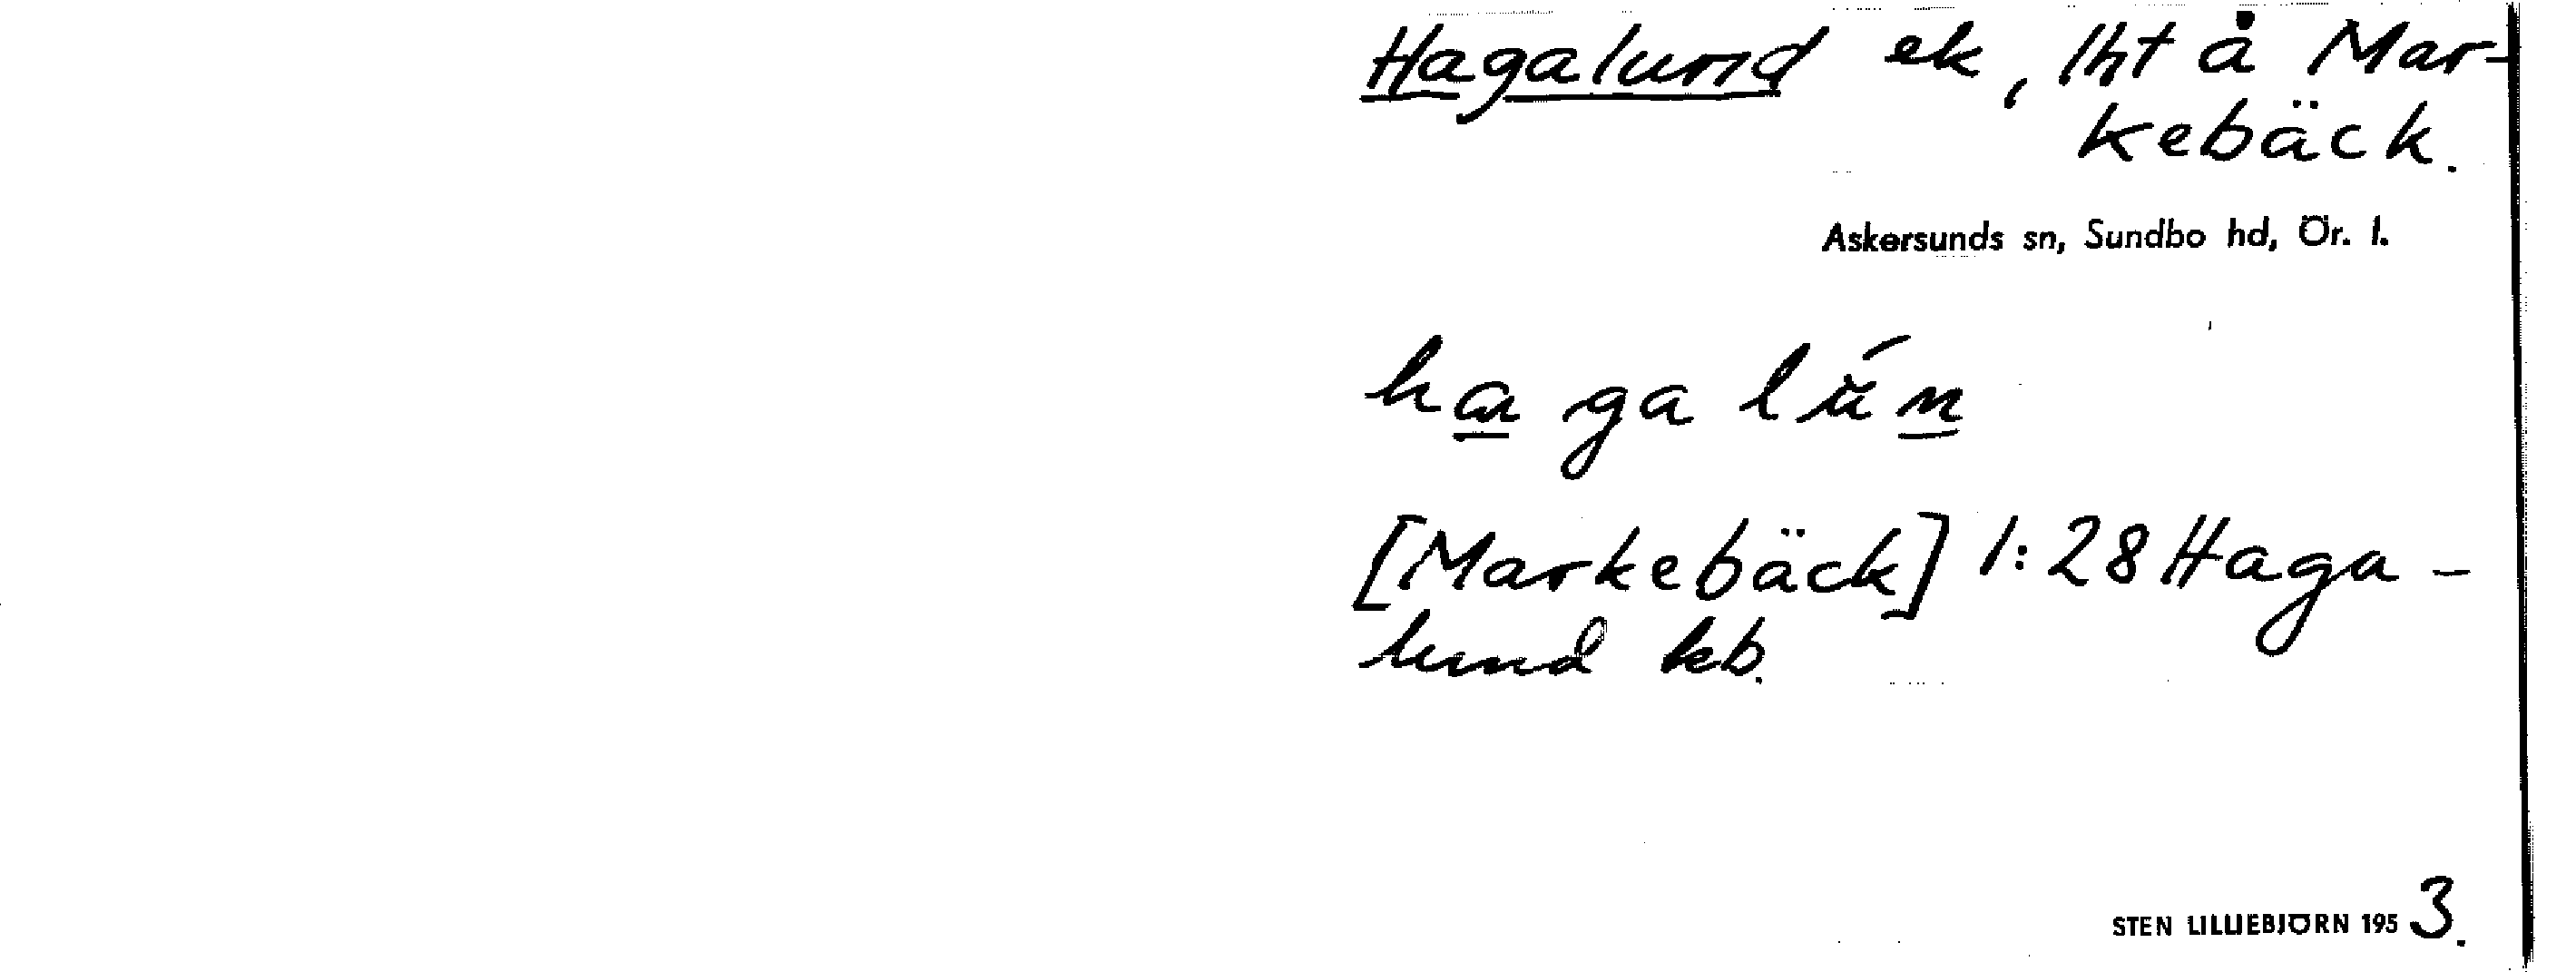 Hagalund ek, lht å Mar-
kebäck.
Askersunds sn, Sundbo hd, Ör. l.
ha ga lún
[Markebäck] 1:28 Haga-
lund kb.
STEN LILLIEBJÖRN 1953.